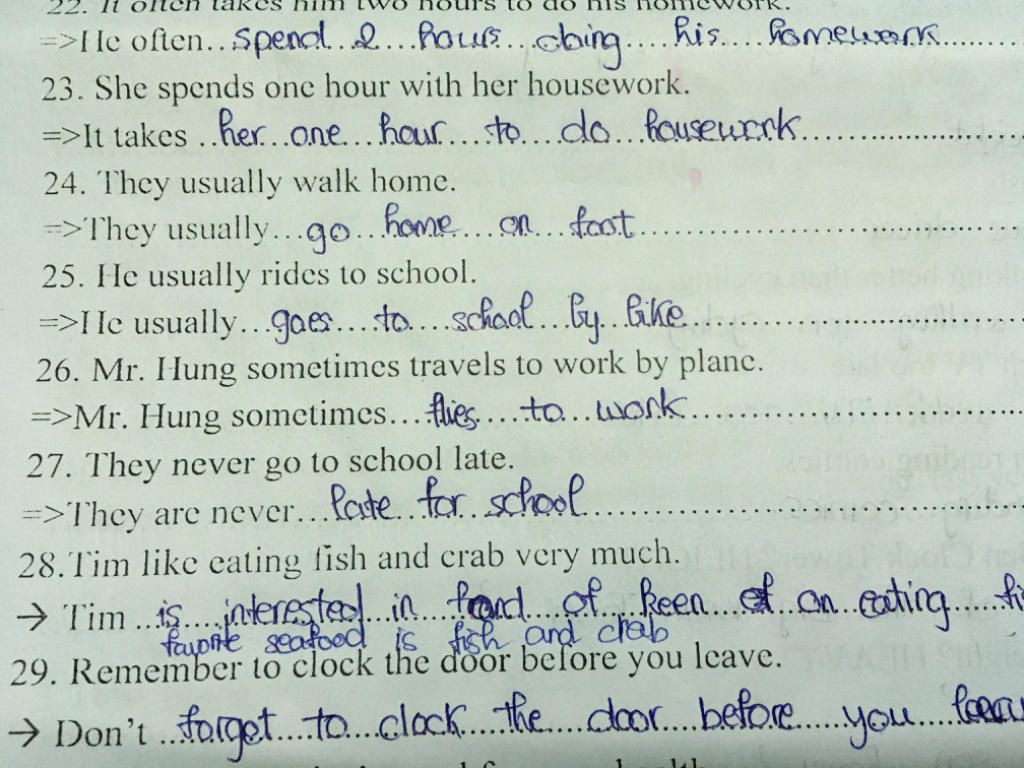 22. It often takes him two hours to do his homework.
=>He often.. spend 2 hours doing his homework
23. She spends one hour with her housework.
=>It takes her one hour to do housework
24. They usually walk home.
=>They usually go home on foot
25. He usually rides to school.
=>He usually goes to school by bike
26. Mr. Hung sometimes travels to work by plane.
=>Mr. Hung sometimes flies to work
27. They never go to school late.
=>They are never late for school
28. Tim like eating fish and crab very much.
→ Tim is interested in fond of keen on eating fi
favorite seafood is fish and crab
29. Remember to clock the door before you leave.
→ Don't forget to clock the door before you